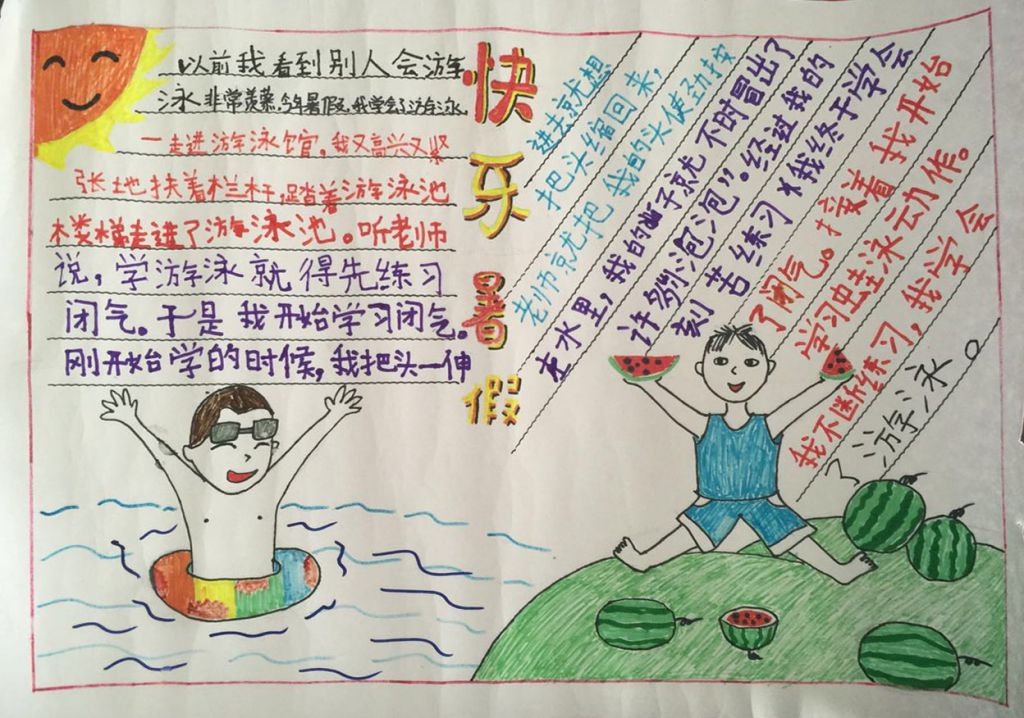 快乐暑假
以前我看到别人会游
泳非常羡慕,今年暑假,我学会了游泳。
一走进游泳馆,我又高兴又紧
张地扶着栏杆,踏着游泳池
楼梯走进了游泳池。听老师
说,学游泳就得先练习
闭气。于是我开始学习闭气。
刚开始学的时候,我把头一伸
进去就想
把头缩回来,
老师就把我的头使劲按
在水里,我的鼻子就不时冒出了
许多“泡泡”。经过我的
刻苦练习,我终于学会
了闭气。接着我开始
学习蛙泳动作。
我不断练习,我学会
了游泳。